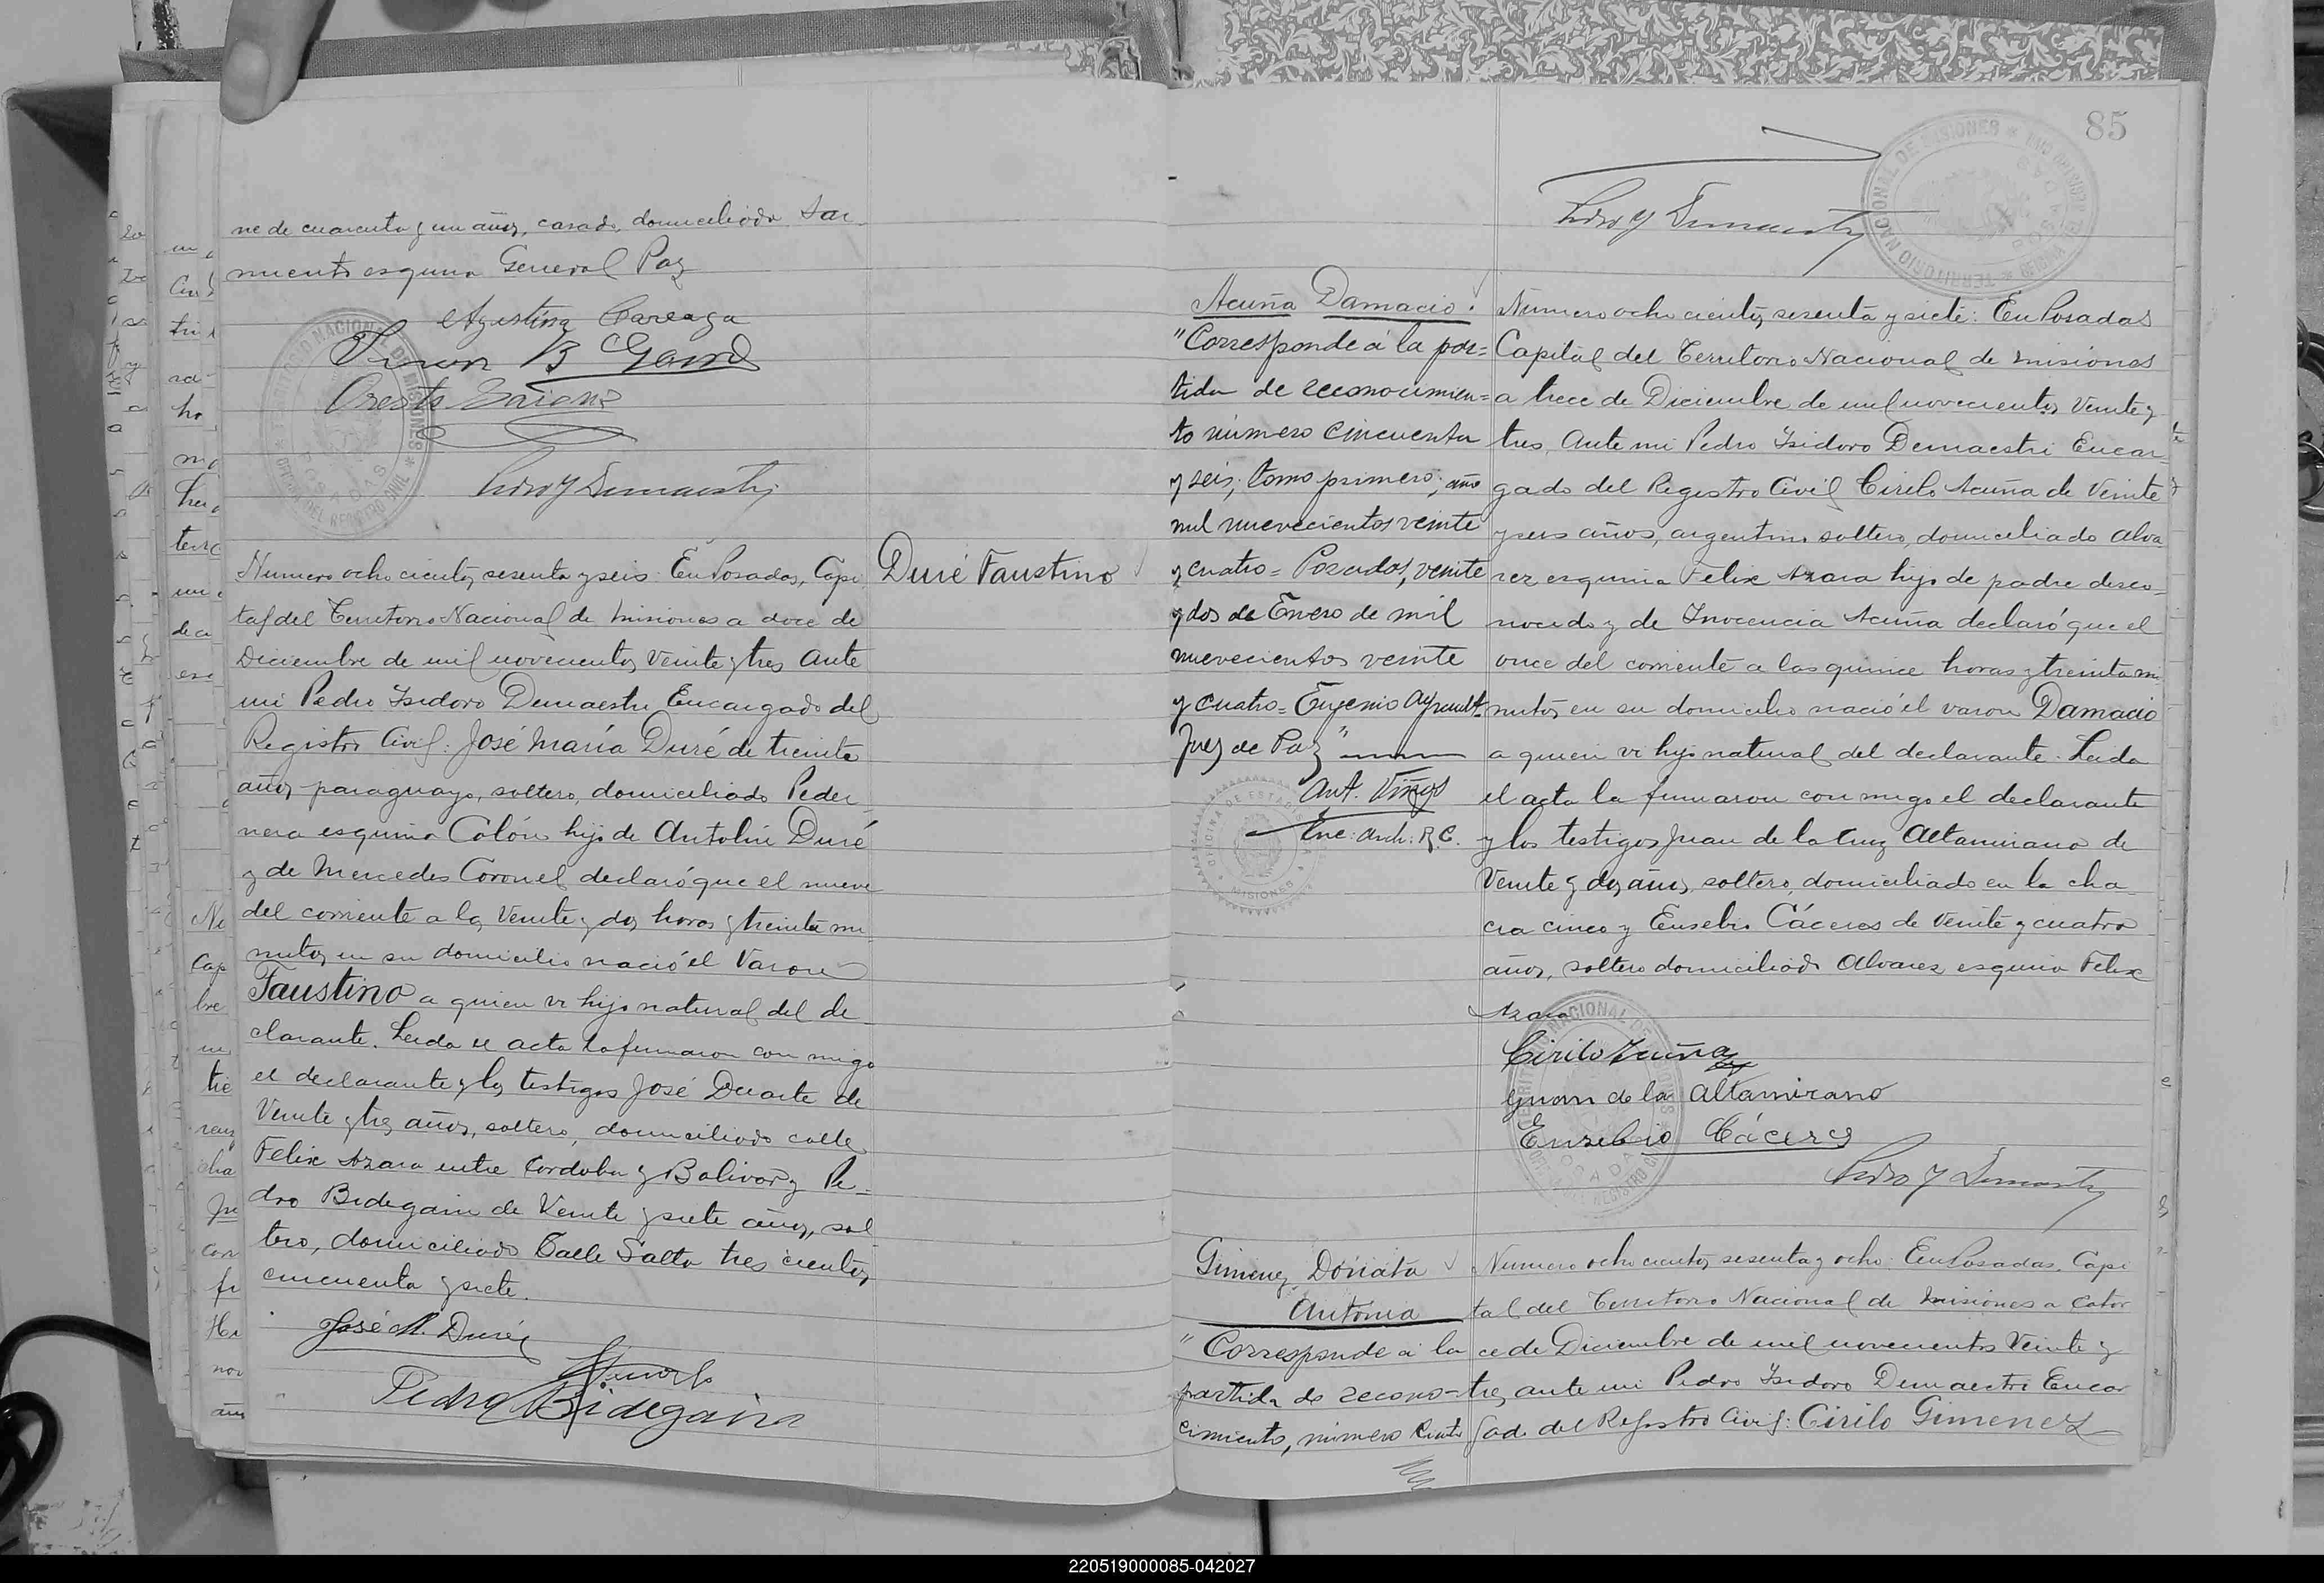 ne de cuarenta y un años, casado, domiciliado Sar
miento esquina General Paz
Agustina Careaga
Pedro I Demaestri
Numero ocho cientos sesenta y seis: En Posadas, Capi
tal del Territorio Nacional de Misiones a doce de
Diciembre de mil novecientos Veinte y tres Ante
mi Pedro Isidoro Demaestri Encargado del
Registro Civil: José María Duré de treinta
años paraguayo, soltero, domiciliado Peder
nera esquina Colón hijo de Antolin Duré
y de Mercedes Coronel declaró que el nueve
del corriente a las Veinte y dos horas y treinta mi
nutos en su domicilio nació el Varon
Faustino a quien vi hijo natural del de
clarante. Leida el acta la firmaron con migo
el declarante y los testigos José Duarte de
Veinte y tres años, soltero, domiciliado calle
Felix Azara entre Cordoba y Bolivar y Pe=
dro Bidegain de Veinte y siete años, sol
tero, domiciliado Calle Salta tres cientos
cincuenta y siete.
José M. Duré
Pedro Bidegain
Duré Faustino
85
Pedro I Demaestri
Acuña Damacio.
"Corresponde á la par=
tida de reconocimien=
to número cincuenta
y seis; tomo primero; año
mil nuevecientos veinte
y cuatro = Posadas, veinte
y dos de Enero de mil
nuevecientos veinte
y cuatro = Eugenio
Juez de Paz"
Ant. Viñas
Enc: Arch: R C.
OFICINA DE ESTADISTICA
MISIONES
Numero ocho cientos sesenta y siete: En Posadas
Capital del Territorio Nacional de Misiones
a trece de Diciembre de mil novecientos Veinte y
tres, Ante mi Pedro Isidoro Demaestri Encar
gado del Registro Civil Cirilo Acuña de Veinte
y seis años, argentino soltero, domiciliado Alva
rez esquina Felix Azara hijo de padre desco=
nocido y de Inocencia Acuña declaró que el
once del corriente a las quince horas y treinta mi
nutos en su domicilio nació el varon Damacio
a quien vi hijo natural del declarante. Leida
el acta la firmaron con migo el declarante
y los testigos Juan de la Cruz Altamirano de
Veinte y dos años, soltero, domiciliado en la cha
cra cinco y Eusebio Cáceres de Veinte y cuatro
años, soltero domiciliado Alvarez esquina Felix
Azara
Cirilo Acuña
Juan de la Altamirano
Eusebio Cáceres
Pedro I Demaestri
Gimenez Donata
Antonia
"Corresponde á la
partida de recono=
cimiento, número Ciento
Numero ocho cientos sesenta y ocho: En Posadas, Capi
tal del Territorio Nacional de Misiones a Cator
ce de Diciembre de mil novecientos Veinte y
tres, ante mi Pedro Isidoro Demaestri Encar
gado del Registro Civil: Cirilo Gimenez
220519000085-042027